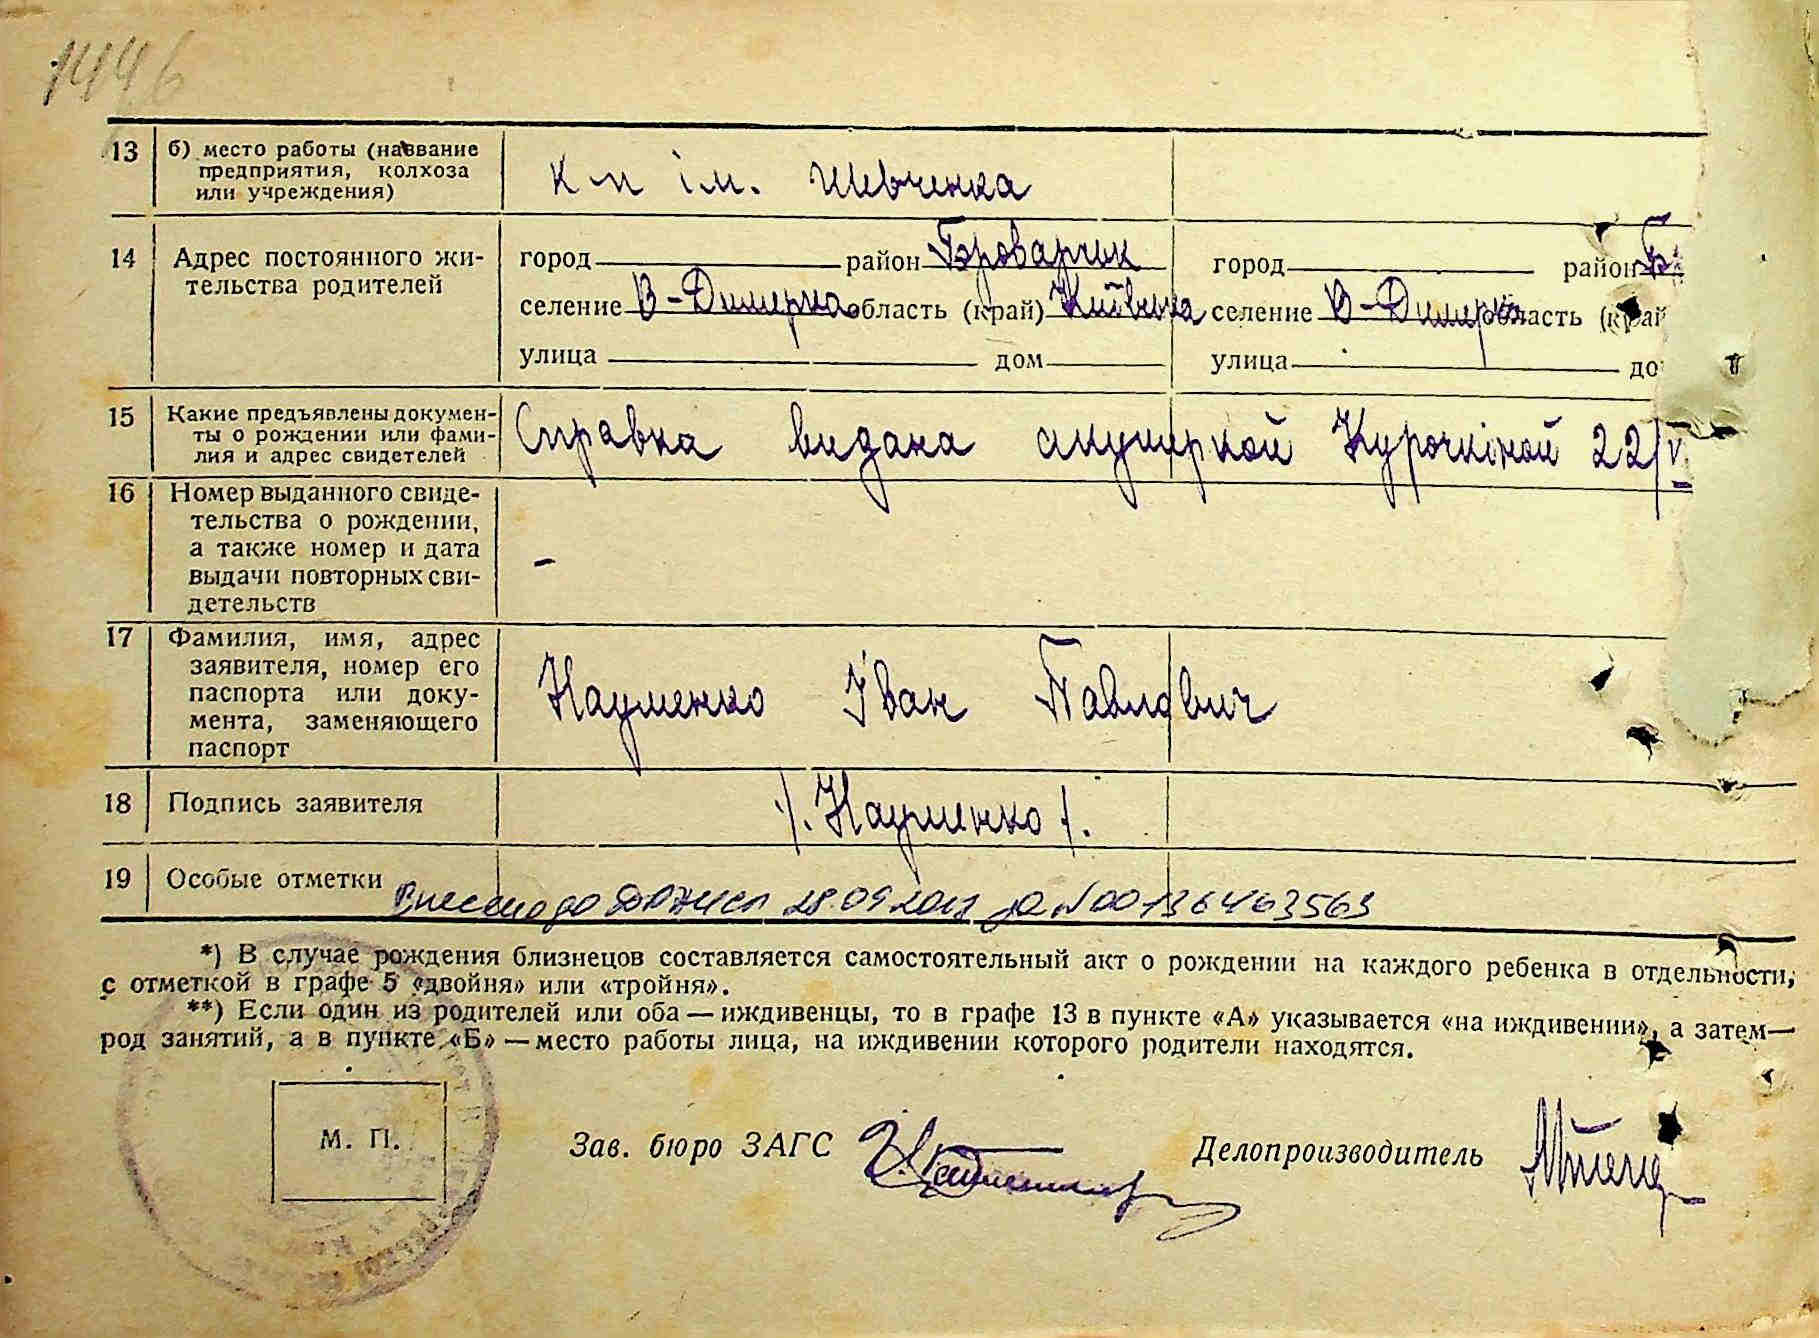 1446
13 б) место работы (название
предприятия, колхоза
или учреждения)
к-п ім. Шевченка
14 Адрес постоянного жи-
тельства родителей
город район Броварськ город район Б
селение В-Димерка область (край) Київська селение В-Димерка область (край
улица дом улица до
15 Какие предъявлены докумен-
ты о рождении или фами-
лия и адрес свидетелей
Справка видана акушеркой Курочкіной 22/V
16 Номер выданного свиде-
тельства о рождении,
а также номер и дата
выдачи повторных сви-
детельств
-
17 Фамилия, имя, адрес
заявителя, номер его
паспорта или доку-
мента, заменяющего
паспорт
Науменко Іван Павлович
18 Подпись заявителя /. Науменко /.
19 Особые отметки Внесено до 28.09.2017 за №00136463563
*) В случае рождения близнецов составляется самостоятельный акт о рождении на каждого ребенка в отдельности,
с отметкой в графе 5 «двойня» или «тройня».
**) Если один из родителей или оба — иждивенцы, то в графе 13 в пункте «А» указывается «на иждивении», а затем—
род занятий, а в пункте «Б» — место работы лица, на иждивении которого родители находятся.
М. П.
Зав. бюро ЗАГС Делопроизводитель